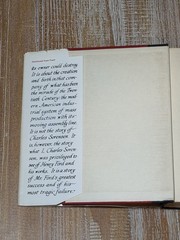 he owner could destroy.
It is about the creation
and birth in that com-
pany of what has been
the miracle of the Twen-
tieth Century: the mod-
ern American indus-
trial system of mass
production with its
moving assembly line.
It is not the story of
Charles Sorensen. It
is, however, the story
what I, Charles Soren-
sen, was privileged to
see of Henry Ford and
his works. It is a story
of Mr. Ford's greatest
success and of his
most tragic failure.